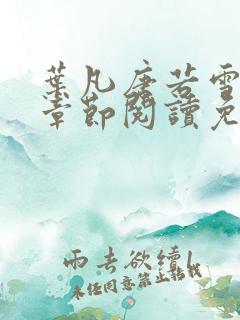 葉凡唐若雪
章節閱讀免
雨去欲續
未經同意禁止轉載